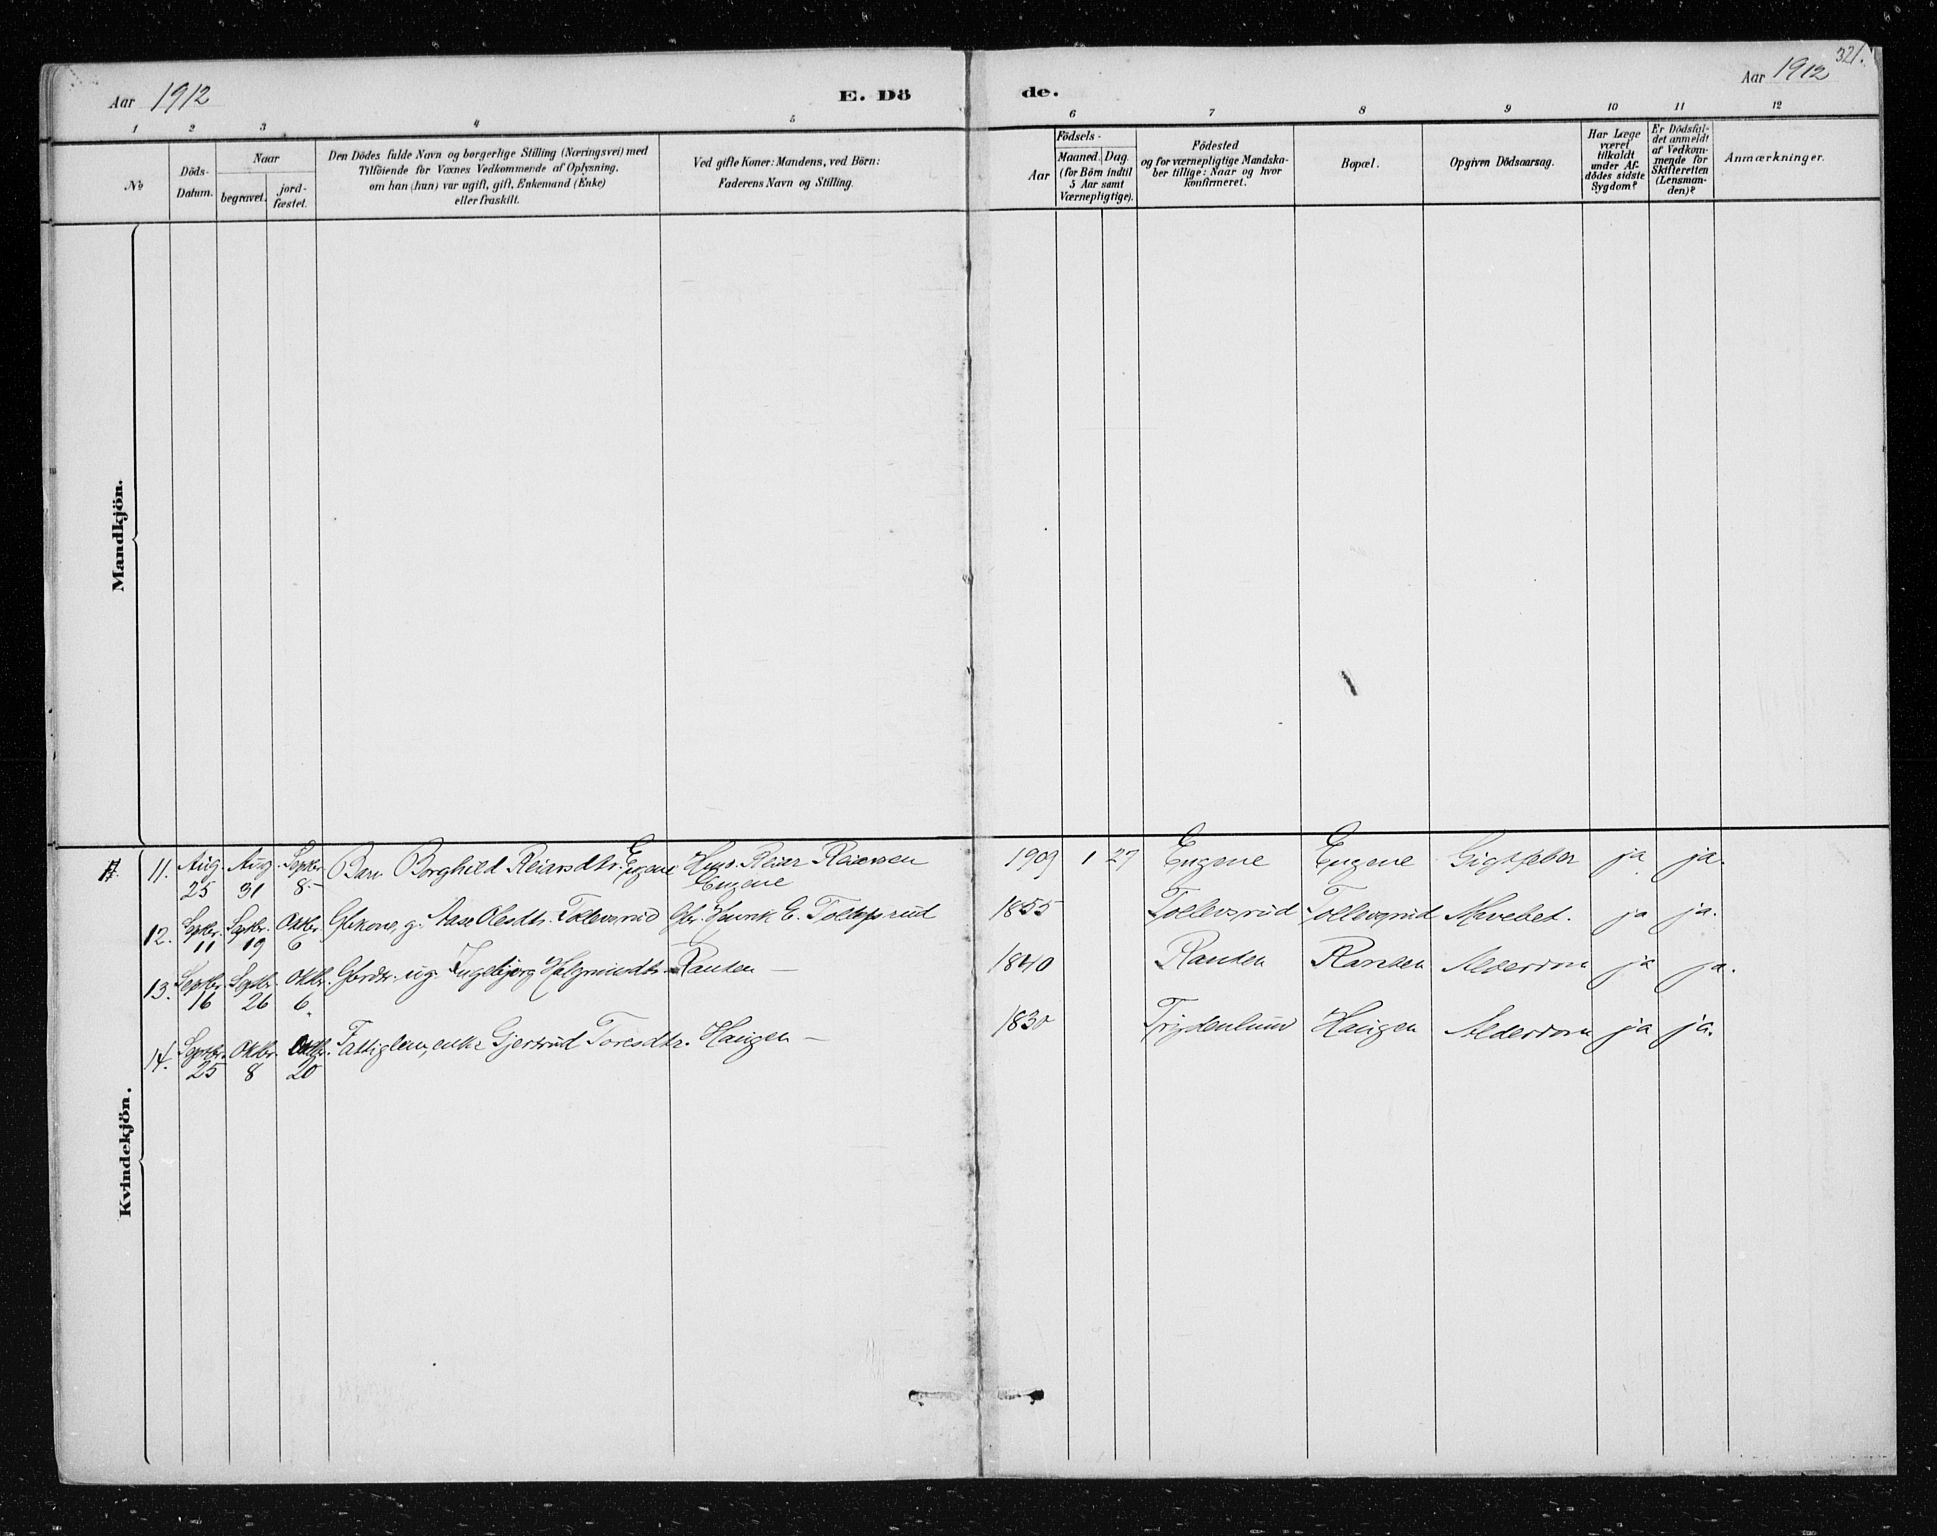 321.
Aar 1912
E. Dö
de.
Aar 1912
1 2 3 4 5 6 7 8 9 10 11 12
№
Döds-
Datum.
Naar
begravet.
jord-
fæstet.
Den Dödes fulde Navn og borgerlige Stilling (Næringsvei) med
Tilföiende for Voxnes Vedkommende af Oplysning,
om han (hun) var ugift, gift, Enkemand (Enke)
eller fraskilt.
Ved gifte Koner: Mandens, ved Börn:
Faderens Navn og Stilling.
Födsels-
Aar
Maaned. Dag.
(for Börn indtil
5 Aar samt
Værnepligtige).
Födested
og for værnepligtige Mandska-
ber tillige: Naar og hvor
konfirmeret.
Bopæl.
Opgiven Dödsaarsag.
Har Læge
været
tilkaldt
under Af-
dödes sidste
Sygdom?
Er Dödsfal-
det anmeldt
af Vedkom-
mende for
Skifteretten
(Lensman-
den)?
Anmærkninger.
Mandkjön.
Kvindekjön.
11. Aug. 25 Aug. 31 Septbr. 8 Barn Borghild Reiarsdtr. Engene Reiar Reiersen Engene 1909 1 27 Engene Engene Gigtfeber ja ja.
12. Septbr. 11 Septbr. 19 Oktbr. 6 Gbkone, g. Aase Olesdtr. Tollevsrud Gbr. E. Tollefsrud 1855 Tollevsrud Tollevsrud Mavebet. ja ja.
13. Septbr. 16 Septbr. 26 Oktbr. 6 Gbrdr. ug. Ingebjørg Ranten — 1840 Ranten Ranten Alderdom ja ja.
14. Septbr. 25 Oktbr. 8 Oktbr. 20 Fattiglem, enke Gjertrud Toresdtr. Haugen — 1830 Haugen Alderdom ja ja.